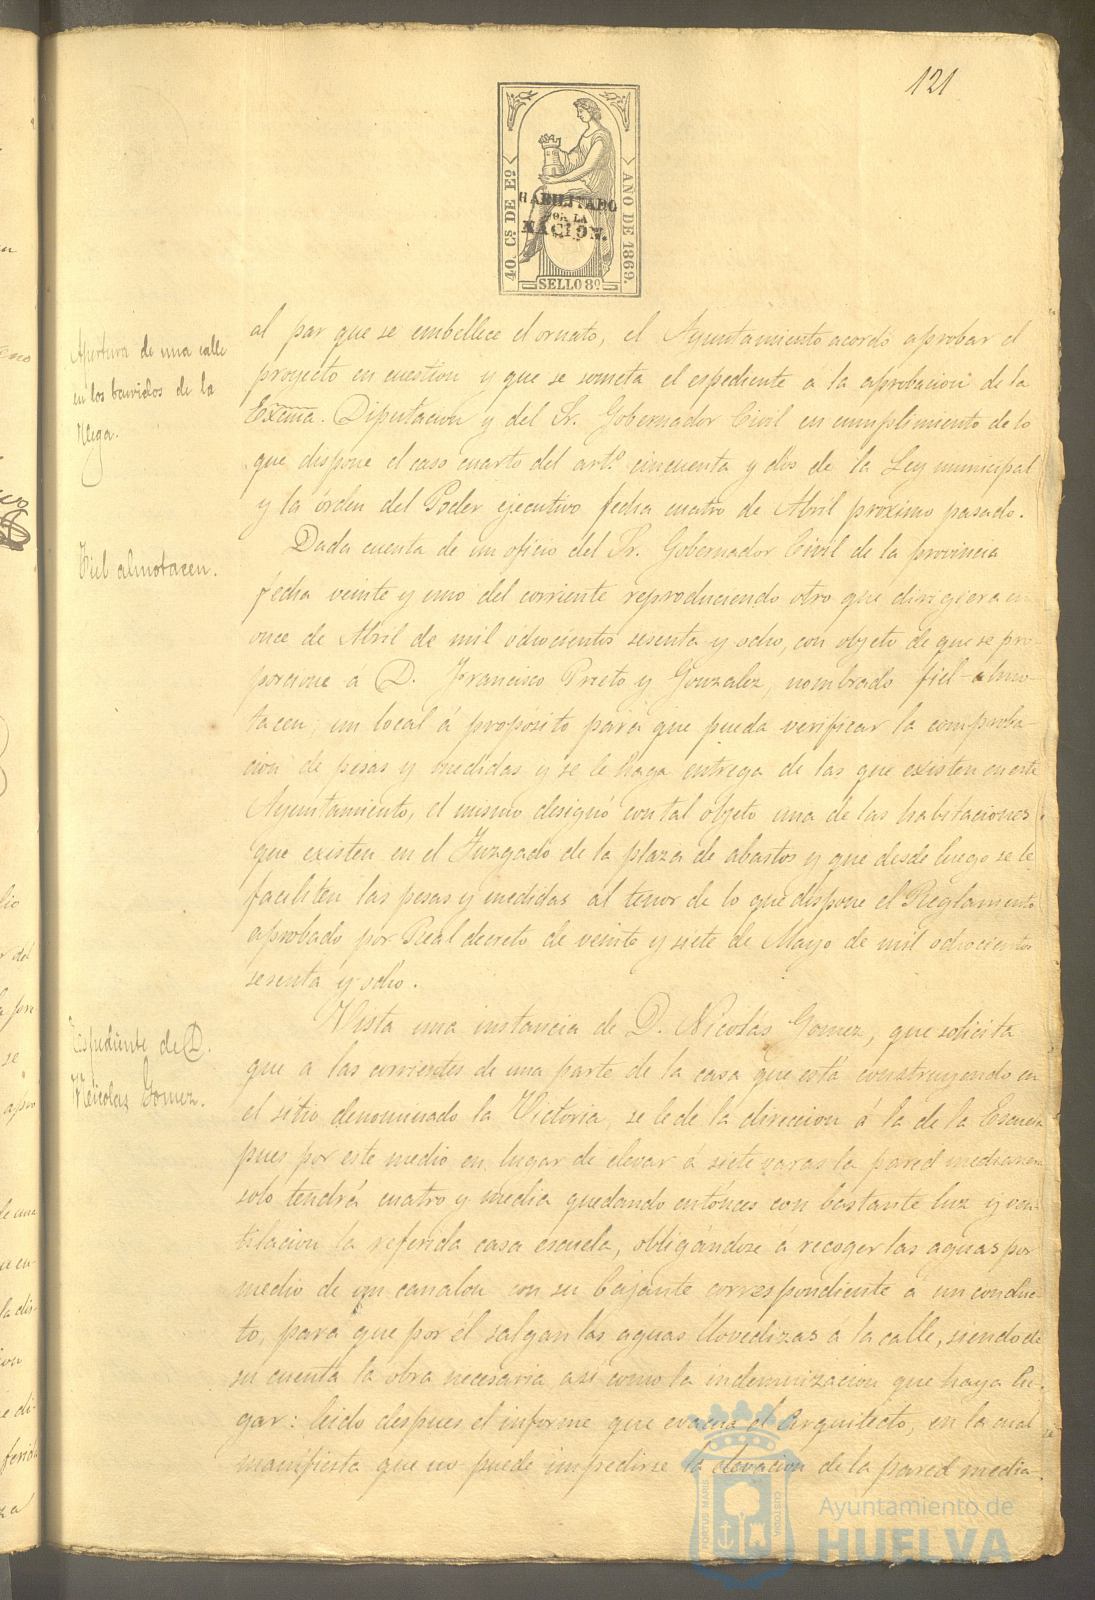 121
40. Cs DE Eo.
AÑO DE 1869.
HABILITADO
POR LA
NACION.
SELLO 8º
Apertura de una calle
en los barridos de la
Vega.
al par que se embellece el ornato, el Ayuntamiento acordó aprobar el
proyecto en cuestion y que se someta el espediente á la aprobacion de la
Excma. Diputacion y del Sr. Gobernador Civil en cumplimiento de lo
que dispone el caso cuarto del artº. cincuenta y dos de la Ley municipal
y la órden del Poder ejecutivo fecha cuatro de Abril próximo pasado.
Fiel almotacen.
Dada cuenta de un oficio del Sr. Gobernador Civil de la provincia
fecha veinte y uno del corriente reproduciendo otro que dirigiera en
once de Abril de mil ochocientos sesenta y ocho, con objeto de que se pro-
porcione á D. Francisco Prieto y Gonzalez, nombrado fiel-almo-
tacen, un local á propósito para que pueda verificar la comproba-
cion de pesas y medidas y se le haga entrega de las que existen en este
Ayuntamiento, el mismo designó con tal objeto una de las habitaciones
que existen en el Juzgado de la plaza de abastos y que desde luego se le
faciliten las pesas y medidas al tenor de lo que dispone el Reglamento
aprobado por Real decreto de veinte y siete de Mayo de mil ochocientos
sesenta y ocho.
Espediente de D.
Nicolas Gomez.
Vista una instancia de D. Nicolás Gomez, que solicita
que á las corrientes de una parte de la casa que está construyendo en
el sitio denominado la Victoria, se le dé la direccion á la de la Escuela
pues por este medio en lugar de elevar á siete varas la pared medianera
solo tendrá cuatro y media quedando entónces con bastante luz y ven-
tilacion la referida casa escuela, obligándose á recoger las aguas por
medio de un canalon con su bajante correspondiente á un conduc-
to, para que por él salgan las aguas llovedizas á la calle, siendo de
su cuenta la obra necesaria asi como la indemnizacion que haya lu-
gar: leido despues el informe que evacua el Arquitecto, en la cual
manifiesta que no puede impedirse la elevacion de la pared media-
PORTUS MARIS
CUSTODIA
Ayuntamiento de
HUELVA